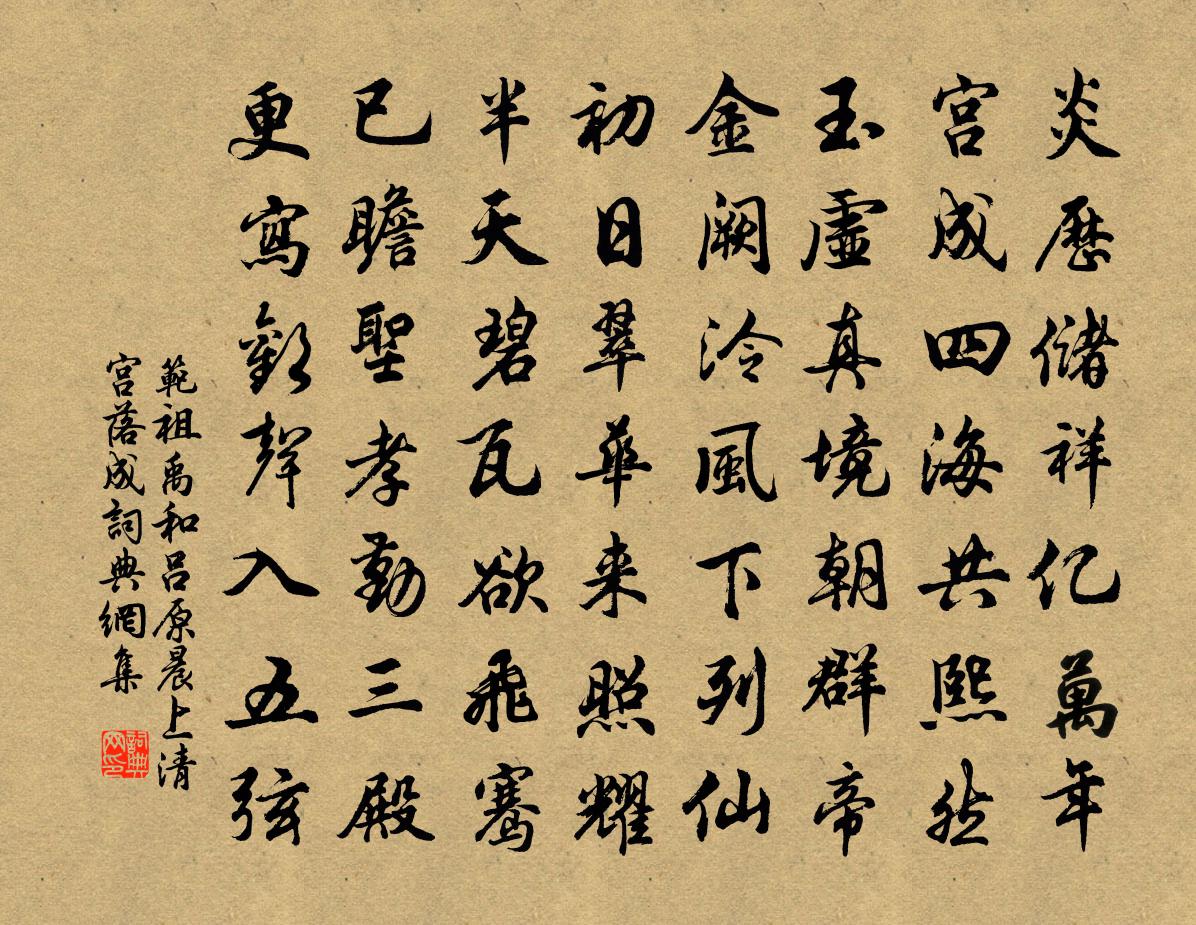 炎歷儲祥亿萬年
宫成四海共熙然
玉虛真境朝群帝
金阙泠風下列仙
初日翠華来照耀
半天碧瓦欲飛騫
已瞻聖孝勤三殿
更寫歡聲入五弦
範祖禹和呂原晨上清
宫落成詞典網集
詞典
网印